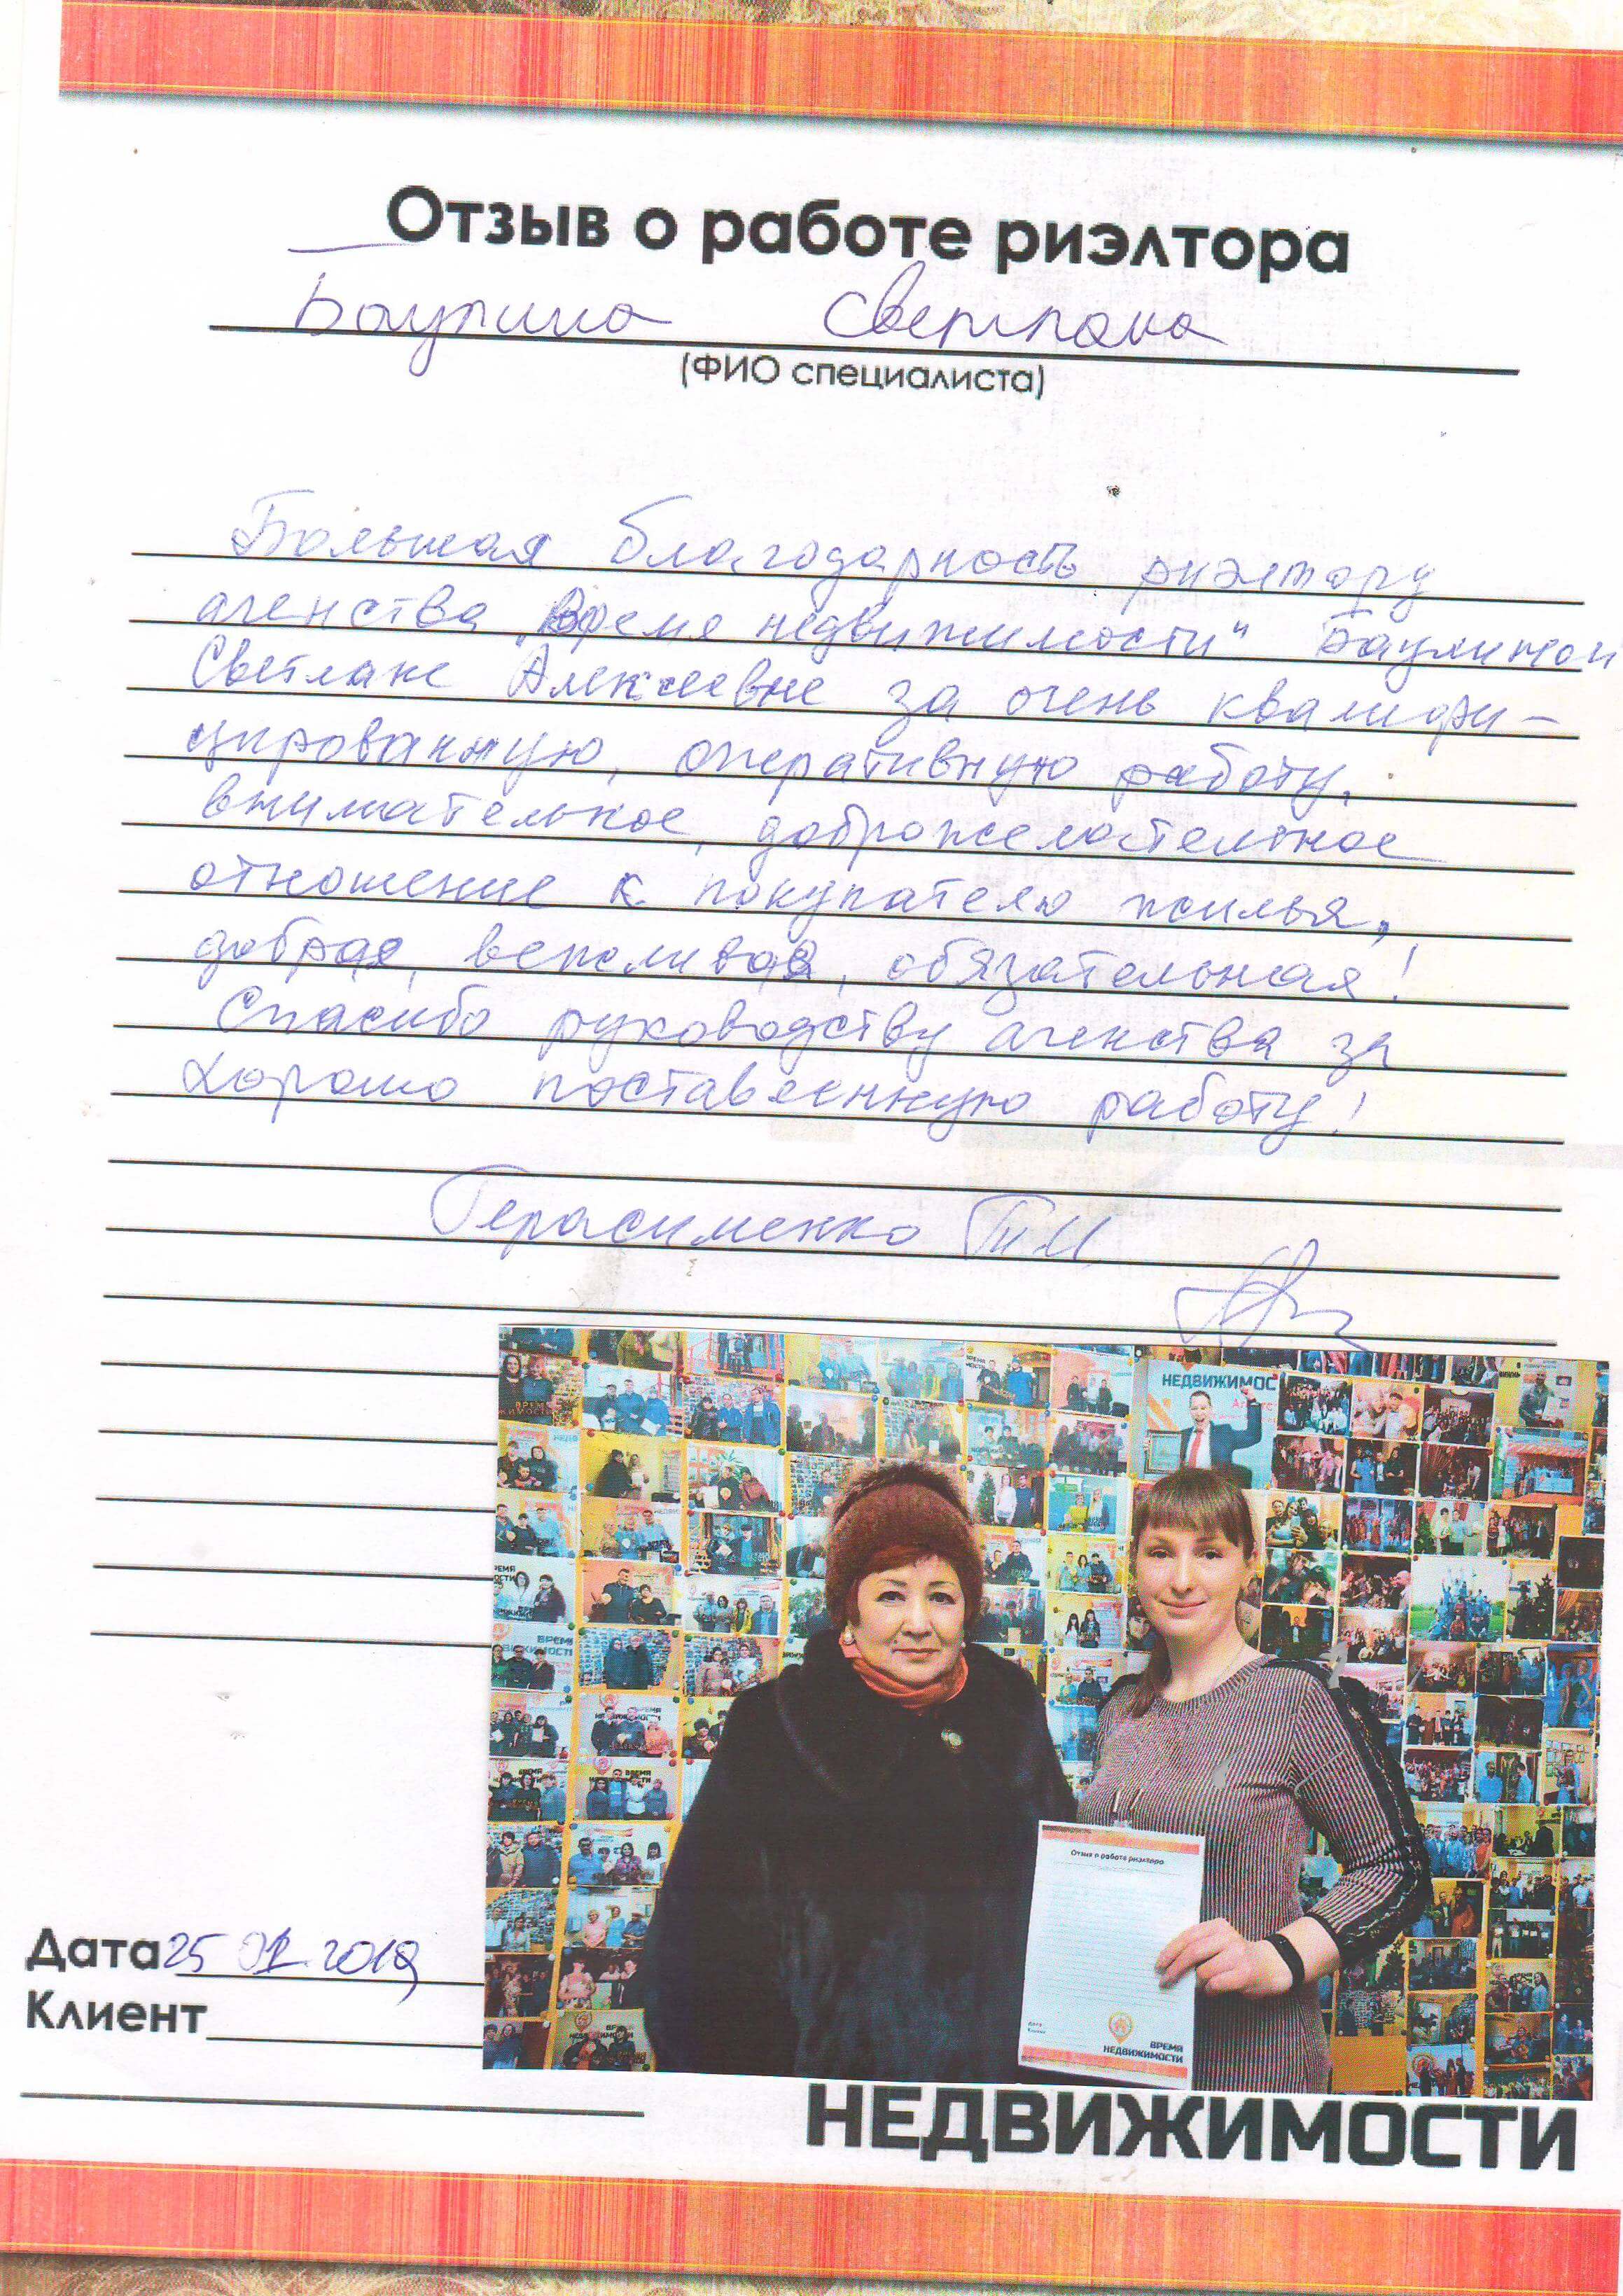 Отзыв о работе риэлтора
Баулина Светлана
(ФИО специалиста)
Большая благодарность риэлтору
агенства „Время недвижимости" Баулиной
Светлане Алексеевне за очень квалифи-
цированную, оперативную работу,
внимательное, доброжелательное
отношение к покупателю жилья,
добрая, вежливая, обязательная!
Спасибо руководству агенства за
хорошо поставленную работу!
Герасименко Т.И.
НЕДВИЖИМОС
Отзыв о работе риэлтора
ВРЕМЯ
НЕДВИЖИМОСТИ
Дата 25 01. 2019
Клиент
НЕДВИЖИМОСТИ